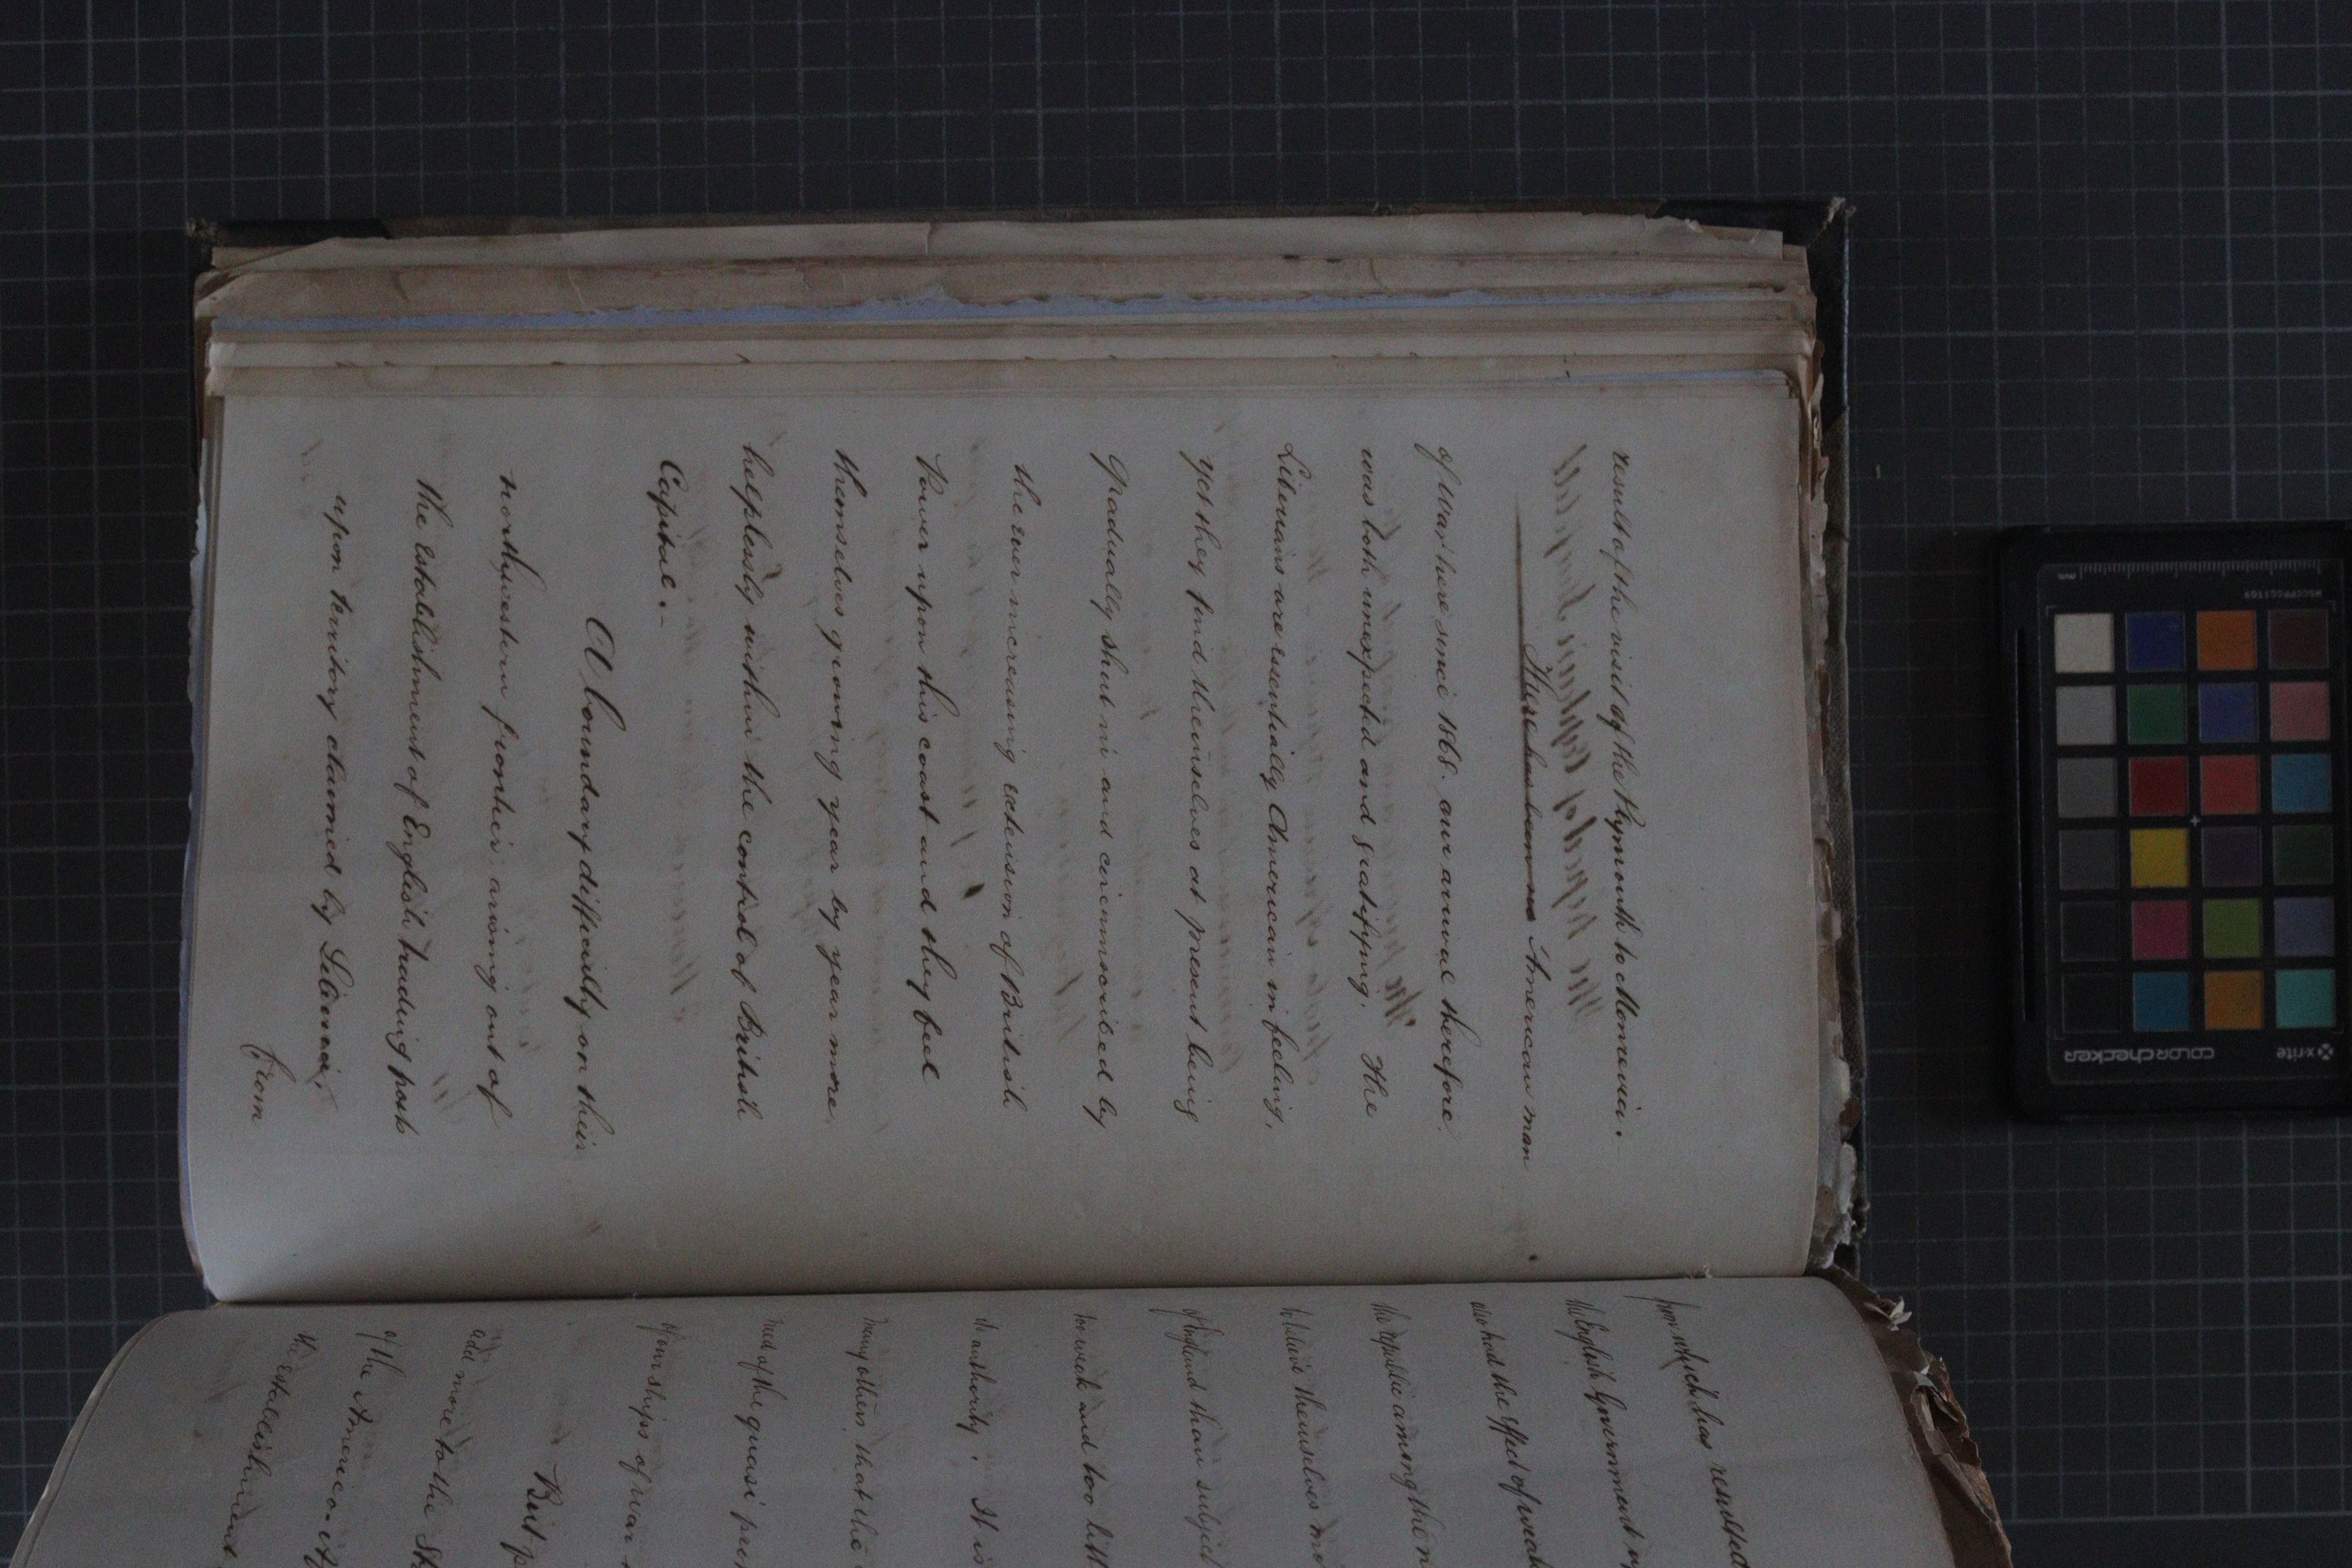 result of the visit of the Plymouth to Monrovia. -
There has been no American man
of war here since 1868. our arrival therefore
was both unexpected and gratifying. The
Liberians are essentially American in feeling,
yet they find themselves at present being
gradually shut in and circumscribed by
the ever increasing extension of British
Power upon this coast and they feel
themselves growing year by year more
helplessly within the control of British
Capital. -
A boundary difficulty on their
northwestern frontier arising out of
the establishment of English trading posts
upon territory claimed by Liberia,
from
from which has resulted
the English Government
has had the effect of
the republic among the
to believe themselves
of England than subject
too weak and too
its authority. It is
many others that the
need of the quasi
of our ships of war
But
add more to the
of the America.
the establishment
x-rite
colorchecker
mm
MSCCPPCC1109